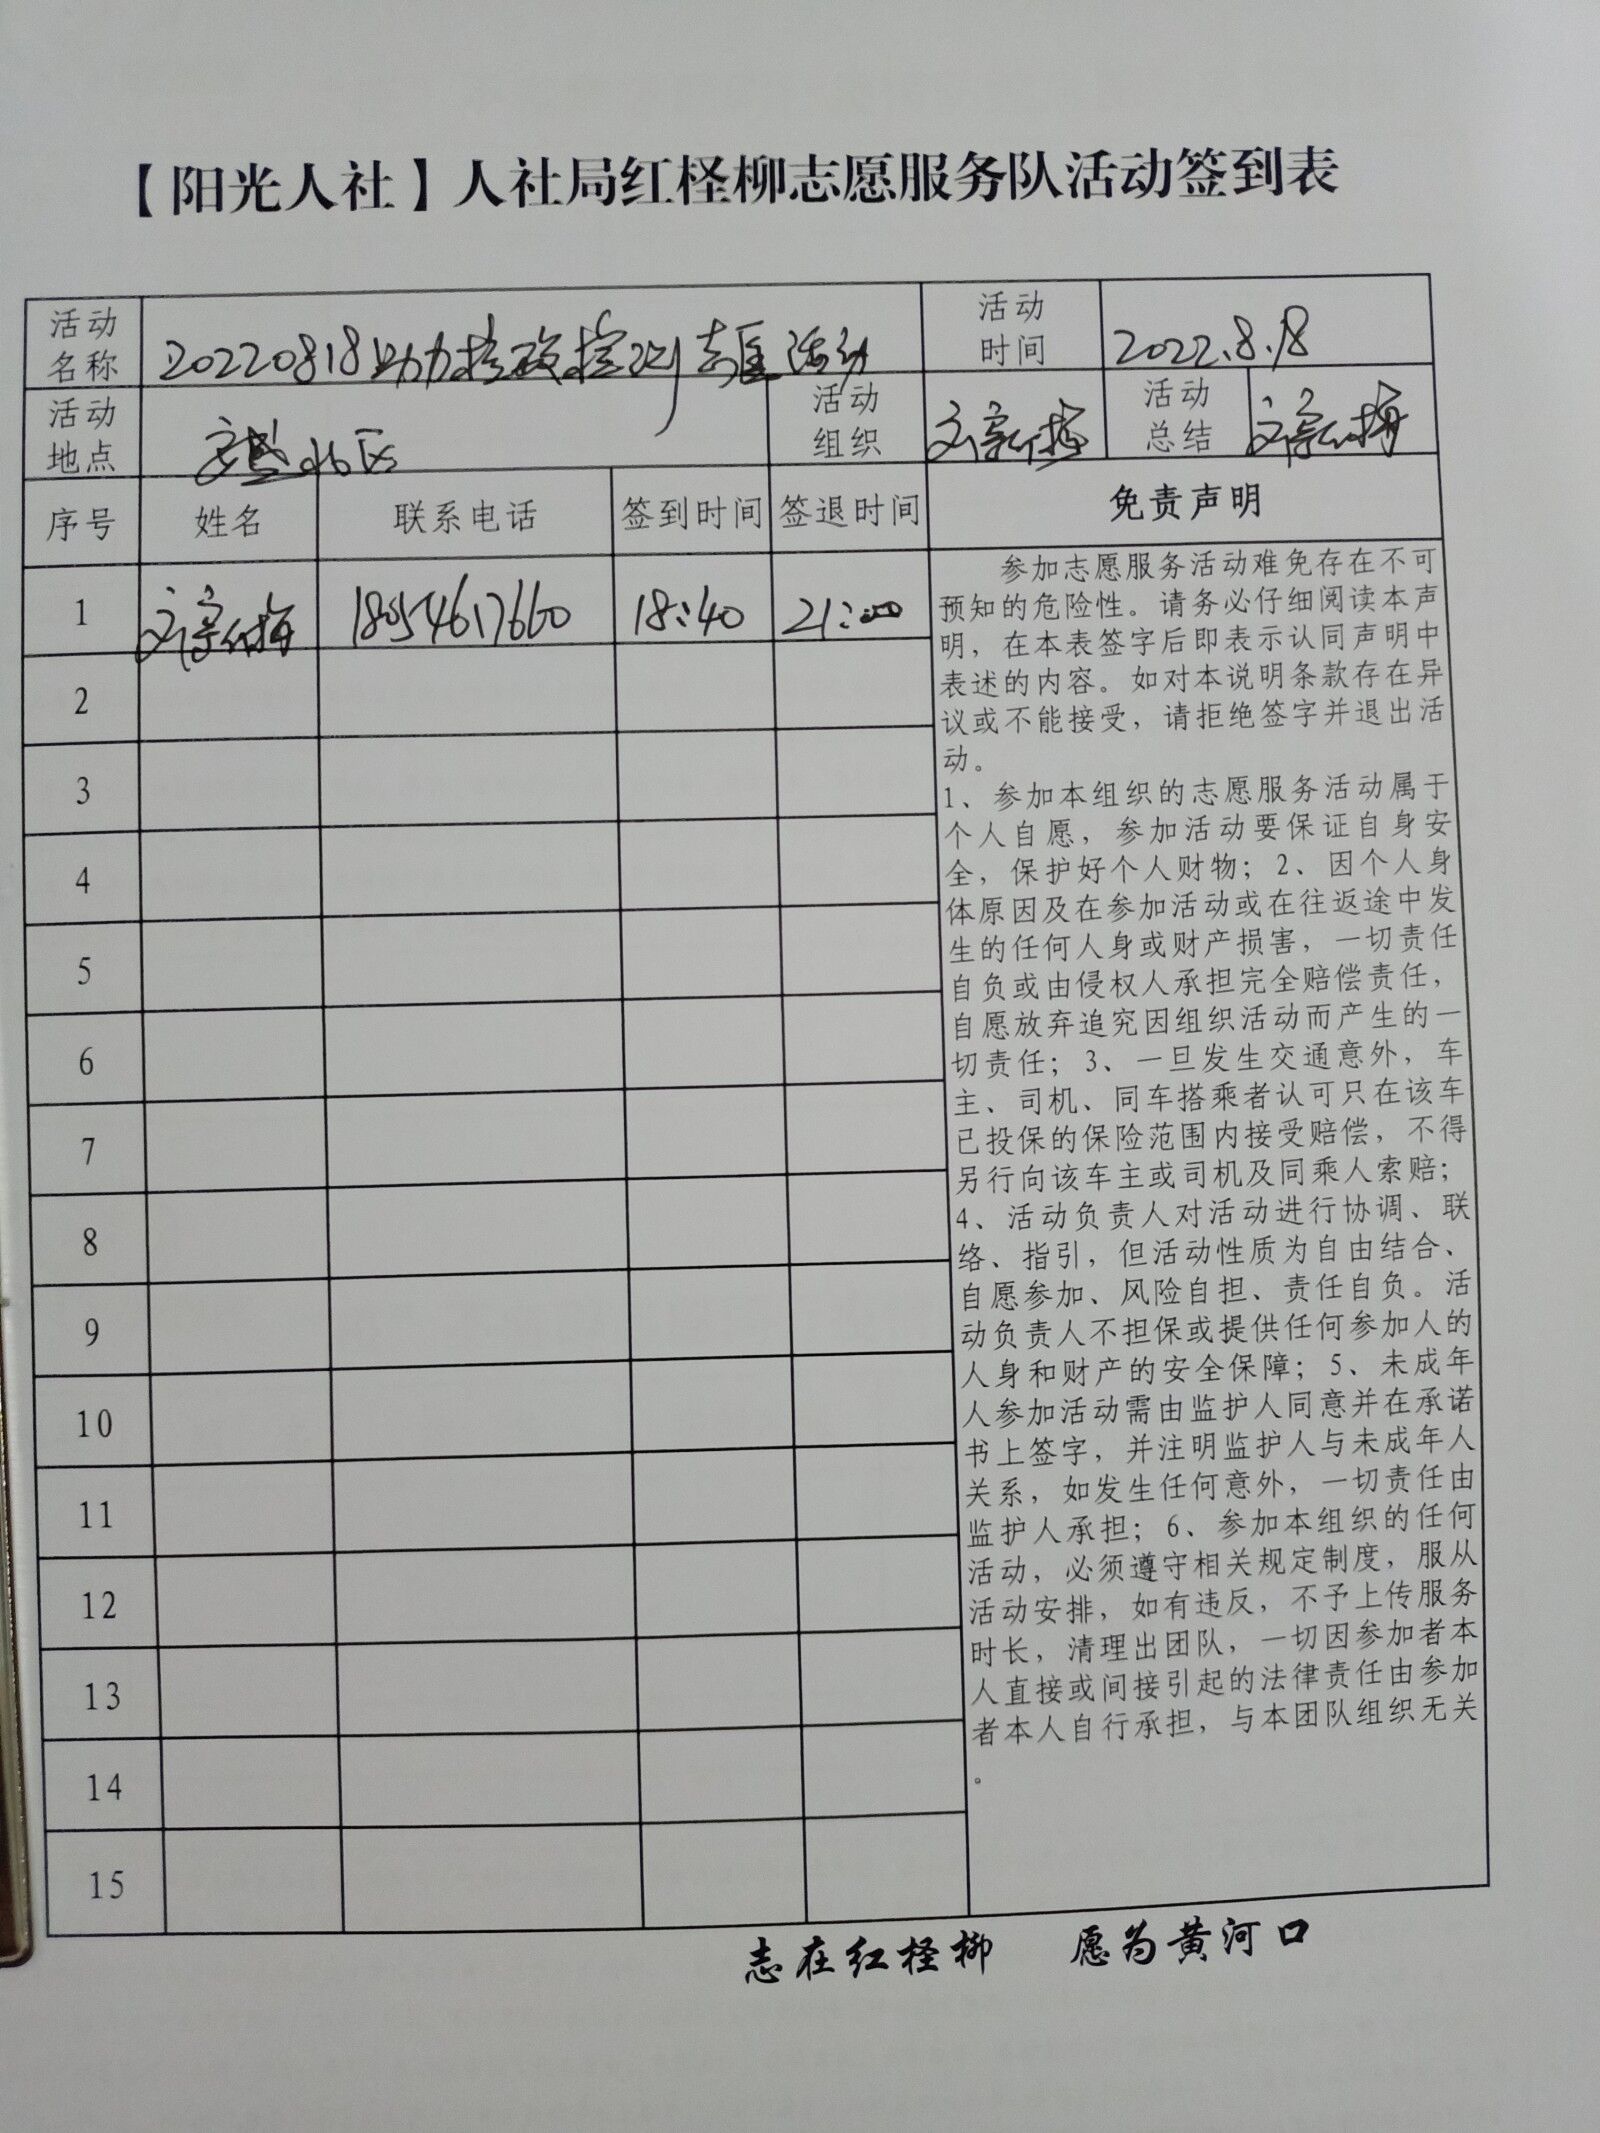 【阳光人社】人社局红柽柳志愿服务队活动签到表
活动名称 20220818助力核酸检测志愿活动 活动时间 2022.8.18
活动地点 安盛小区 活动组织 活动总结
序号 姓名 联系电话 签到时间 签退时间 免责声明
1 18054617660 18:40 21:00
2
3
4
5
6
7
8
9
10
11
12
13
14
15
参加志愿服务活动难免存在不可
预知的危险性。请务必仔细阅读本声
明，在本表签字后即表示认同声明中
表述的内容。如对本说明条款存在异
议或不能接受，请拒绝签字并退出活
动。
1、参加本组织的志愿服务活动属于
个人自愿，参加活动要保证自身安
全，保护好个人财物；2、因个人身
体原因及在参加活动或在往返途中发
生的任何人身或财产损害，一切责任
自负或由侵权人承担完全赔偿责任，
自愿放弃追究因组织活动而产生的一
切责任；3、一旦发生交通意外，车
主、司机、同车搭乘者认可只在该车
已投保的保险范围内接受赔偿，不得
另行向该车主或司机及同乘人索赔；
4、活动负责人对活动进行协调、联
络、指引，但活动性质为自由结合、
自愿参加、风险自担、责任自负。活
动负责人不担保或提供任何参加人的
人身和财产的安全保障；5、未成年
人参加活动需由监护人同意并在承诺
书上签字，并注明监护人与未成年人
关系，如发生任何意外，一切责任由
监护人承担；6、参加本组织的任何
活动，必须遵守相关规定制度，服从
活动安排，如有违反，不予上传服务
时长，清理出团队，一切因参加者本
人直接或间接引起的法律责任由参加
者本人自行承担，与本团队组织无关
。
志在红柽柳 愿为黄河口